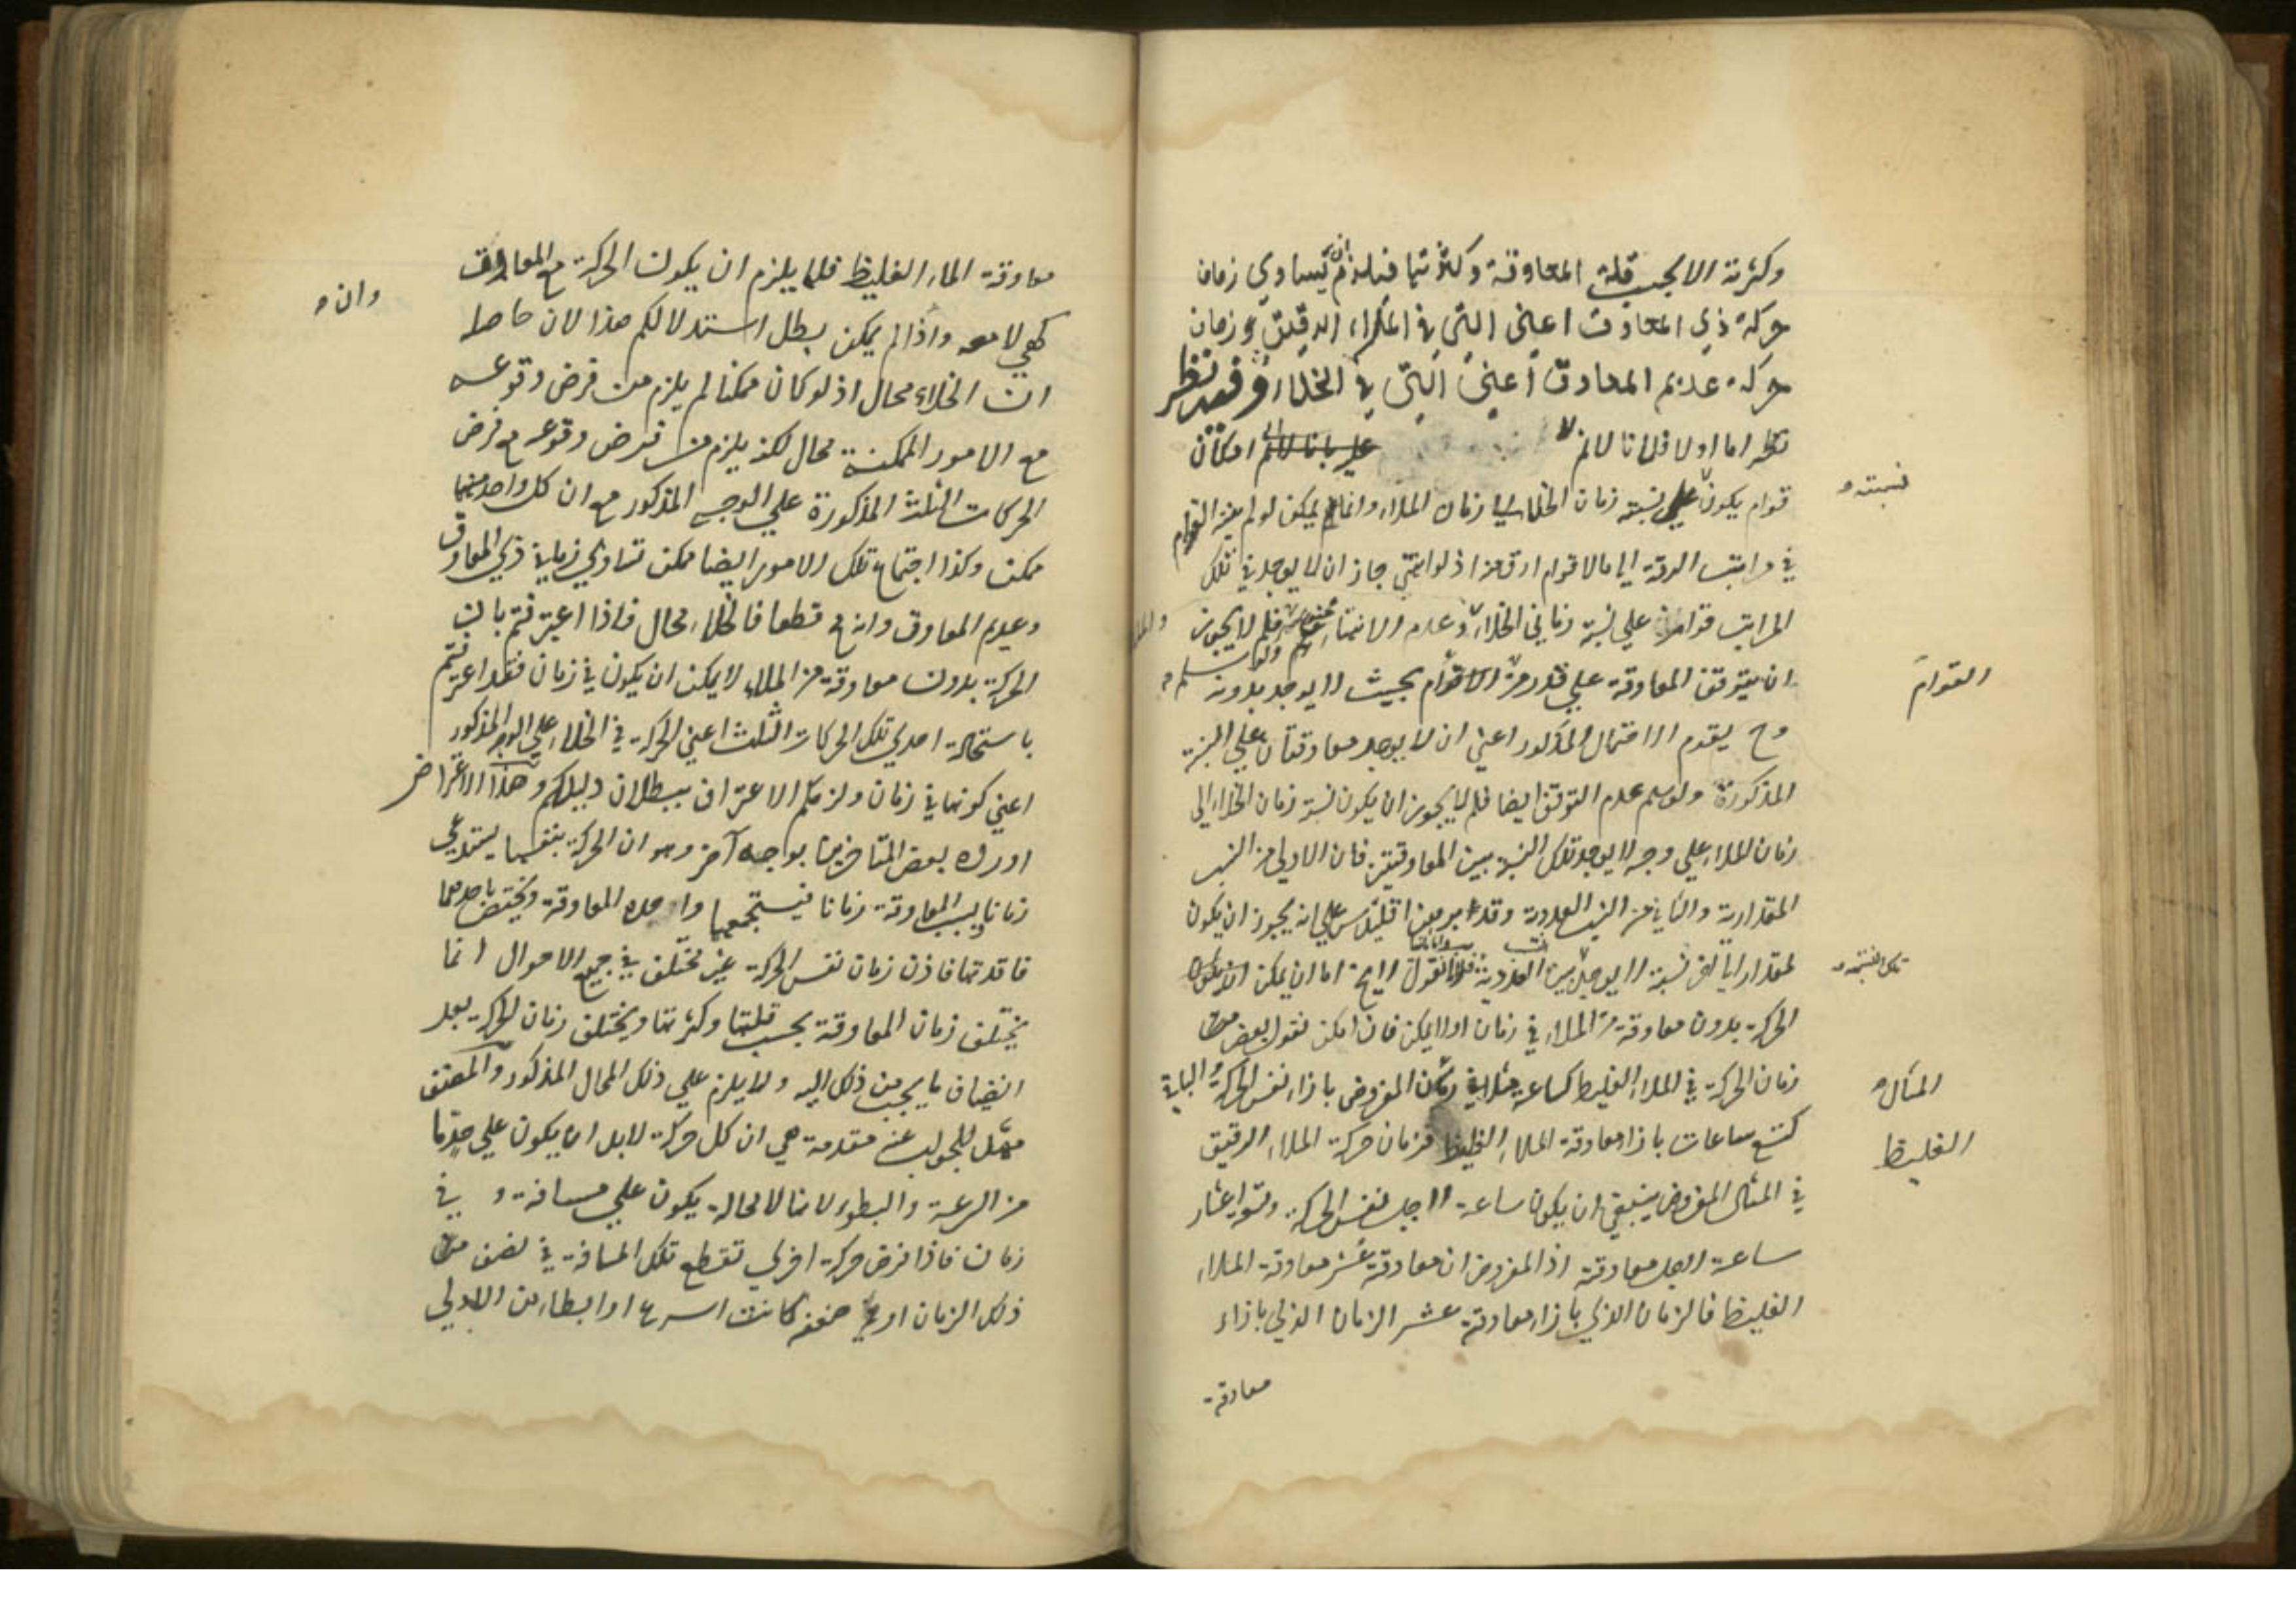 وكثرته الا بحسب قلة المعاوقة وكثرتها فيلزم ان يساوي زمان
حركة ذي المعاوق اعني التي في الملاء الرقيق وزمان
حركة عديم المعاوق اعني التي في الخلاء وفيه نظر
نظر اما اولا فلانا لانم امكان
قوام يكون علي نسبة زمان الخلاء الي زمان الملاء وانما يمكن لو لم ينته القوام
نسبته
في مراتب الرقة الي ما لا قوام ارق منه اذ لو انتهي جاز ان لا يوجد في تلك
المراتب قوام علي نسبة زماني الخلاء وعدم الانتهاء فلم لا يجوز
ان يتوقف المعاوقة علي قدر من القوام بحيث لا يوجد بدونه
القوام
وح يقدم الاحتمال المذكور اعني ان لا يوجد معاوقتان علي النسبة
المذكورة ولو سلم عدم التوقف ايضا فلم لا يجوز ان يكون نسبة زمان الخلاء الي
زمان الملاء علي وجه لا يوجد تلك النسبة بين المعاوقتين فان الاولي من النسب
المقدارية والثاني من النسب العددية وقد برهن اقليدس علي انه يجوز ان يكون
لمقدار الي آخر نسبة لا يوجد بين العددية نقول لا يخ اما ان يمكن ان يكون
تلك النسبة
الحركة بدون معاوقة من الملاء في زمان او لا يمكن فان امكن نقول بعض من
زمان الحركة في الملاء الغليظ كساعة مثلا في المفروض بازاء نفس الحركة والباقي
المثال
كتسع ساعات بازاء معاوقة الملاء الغليظ فزمان حركة الملاء الرقيق
الغليظ
في المثال المفروض ينبغي ان يكون ساعة لاجل نفس الحركة وتسعة اعشار
ساعة لاجل معاوقته اذ المفروض ان معاوقته عشر معاوقة الملاء
الغليظ فالزمان الذي بازاء معاوقته عشر الزمان الذي بازاء
معاوقة
معاوقة الماء الغليظ فلا يلزم ان يكون الحركة مع المعاوق
كهي لا معه واذا لم يمكن بطل استدلالكم هذا لان حاصله
وان
ان الخلاء محال اذ لو كان ممكنا لم يلزم من فرض وقوعه
مع الامور الممكنة محال لكنه يلزم من فرض وقوعه مع فرض
الحركات الثلث المذكورة علي الوجه المذكور مع ان كل واحد منها
ممكن وكذا اجتماع تلك الامور ايضا ممكن تساوي زماني ذي المعاوق
وعديم المعاوق وانه مح قطعا فالخلاء محال فاذا اعترفتم بان
الحركة بدون معاوقة من الملاء لا يمكن ان يكون في زمان فقد اعترفتم
باستحالة احدي تلك الحركات الثلث اعني الحركة في الخلاء علي الوجه المذكور
اعني كونها في زمان ولزمكم الاعتراف ببطلان دليلكم وهذا الاعتراض
اورده بعض المتاخرين بوجه آخر وهو ان الحركة بنفسها يستدعي
زمانا وبسبب المعاوقة زمانا فيستجمعهما واجدة المعاوقة ويختص باحدهما
فاقدتها فاذن زمان نفس الحركة غير مختلف في جميع الاحوال انما
يختلف زمان المعاوقة بحسب قلتها وكثرتها ويختلف زمان الحركة بعد
انضياف ما يجب من ذلك اليه ولا يلزم علي ذلك المحال المذكور والمصنف
مهد للجواب عنه مقدمة هي ان كل حركة لابد ان يكون علي حد ما
من السرعة والبطوء لانها لا محالة يكون علي مسافة وفي
زمان فاذا فرض حركة اخري تقطع تلك المسافة في نصف من
ذلك الزمان او في ضعفه كانت اسرع او ابطاء من الاولي